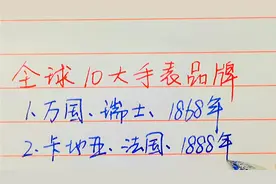 全球10大手表品牌
1.万国、瑞士、1868年
2.卡地亚、法国、1888年